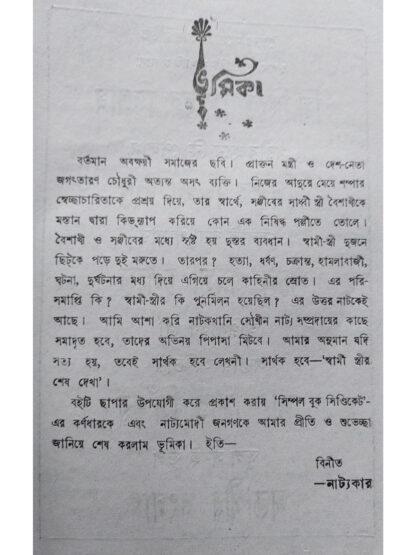 ভূমিকা
বর্তমান অবক্ষয়ী সমাজের ছবি। প্রাক্তন মন্ত্রী ও দেশ-নেতা
জগৎতারণ চৌধুরী অত্যন্ত অসৎ ব্যক্তি। নিজের আদুরে মেয়ে শম্পার
স্বেচ্ছাচারিতাকে প্রশ্রয় দিয়ে, তার স্বার্থে, সঞ্জীবের সাধ্বী স্ত্রী বৈশাখীকে
মস্তান দ্বারা কিডন্যাপ করিয়ে কোন এক নিষিদ্ধ পল্লীতে তোলে।
বৈশাখী ও সঞ্জীবের মধ্যে সৃষ্টি হয় দুস্তর ব্যবধান। স্বামী-স্ত্রী দুজনে
ছিট্‌কে পড়ে দুই মরুতে। তারপর? হত্যা, ধর্ষণ, চক্রান্ত, হামলাবাজী,
ঘটনা, দুর্ঘটনার মধ্য দিয়ে এগিয়ে চলে কাহিনীর স্রোত। এর পরি-
সমাপ্তি কি? স্বামী-স্ত্রীর কি পুনর্মিলন হয়েছিল? এর উত্তর নাটকেই
আছে। আমি আশা করি নাটকখানি সৌখীন নাট্য সম্প্রদায়ের কাছে
সমাদৃত হবে, তাদের অভিনয় পিপাসা মিটবে। আমার অনুমান যদি
সত্য হয়, তবেই সার্থক হবে লেখনী। সার্থক হবে—‘স্বামী স্ত্রীর
শেষ দেখা’।
বইটি ছাপার উপযোগী করে প্রকাশ করায় ‘সিম্পল বুক সিণ্ডিকেট’-
এর কর্ণধারকে এবং নাট্যমোদী জনগণকে আমার প্রীতি ও শুভেচ্ছা
জানিয়ে শেষ করলাম ভূমিকা। ইতি—
বিনীত
—নাট্যকার